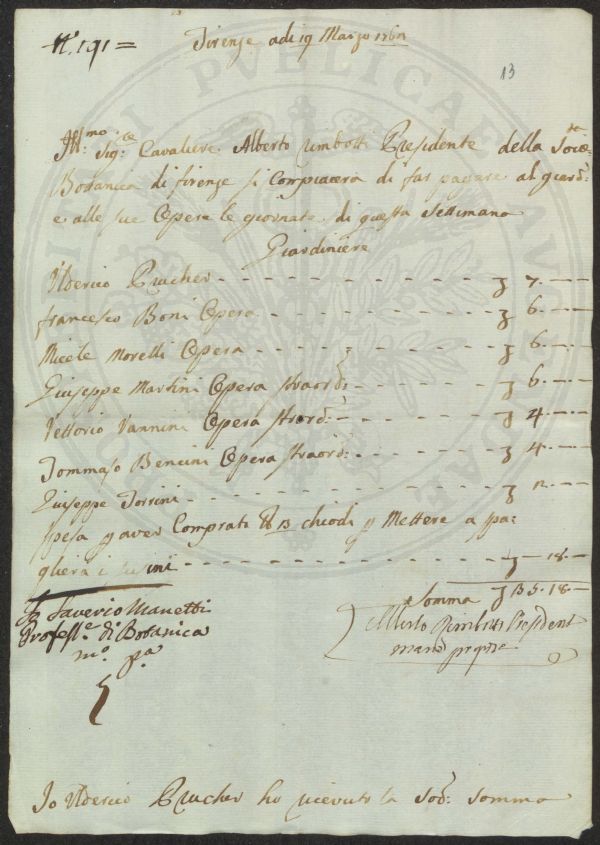 Nº. 191 =
Firenze adi 19 Marzo 176
13
Ill:mo Sig:re Cavaliere Alberto Rimbotti Presidente della Socie:tà
Botanica di firenze si Compiacerà di far pagare al giard:
e alle sue Opere le giornate di questa Settimana
Giardiniere
Ulderico Prucher - - - 7. —
francesco Boni Opera - - - 6. —
Micele Morelli Opera - - - 6. —
Giuseppe Martini Opera straord: - - - 6. —
Vettorio Vannini Opera strord: - - - 4. —
Tommaso Bencini Opera straord: - - - 4. —
Giuseppe Torrini - - - 2. —
spesa p aver Comprati 13 chiodi p Mettere a spa:
gliera i susini - - - 18. —
Somma 35. 18. —
Saverio Manetti
Profess:e di Botanica
m:o p:a
Alberto Rimbotti President
mano propria
Io Ulderico Prucher ho ricevuto la Sod: Somma